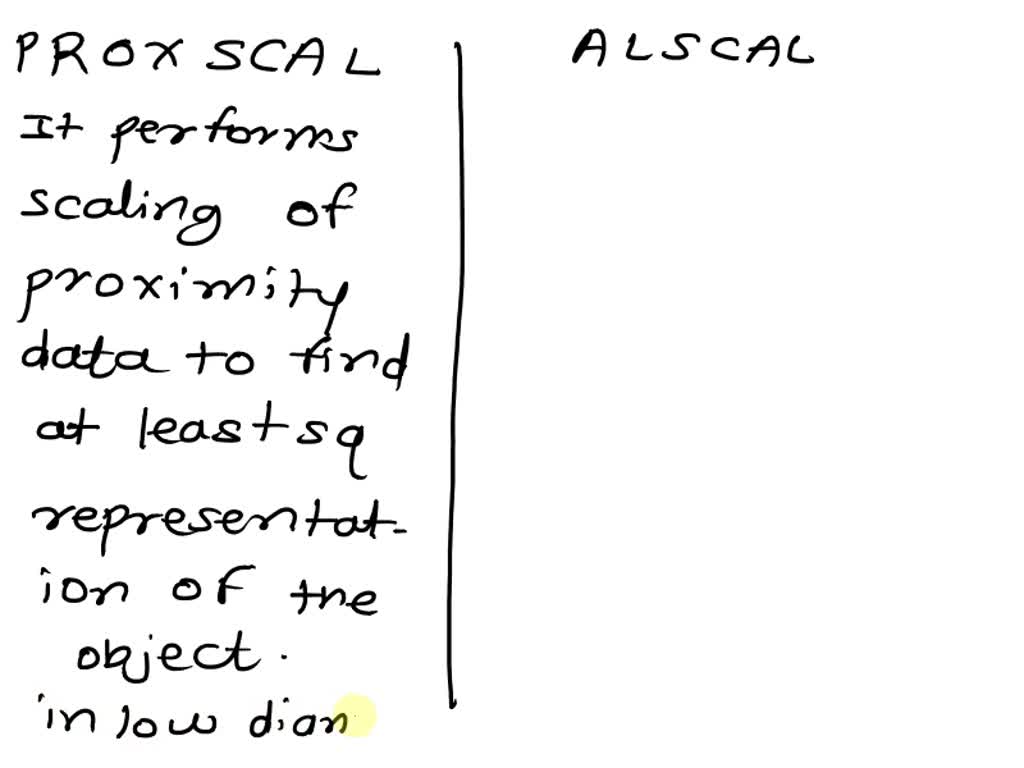 PROXSCAL
ALSCAL
It performs
scaling of
proximity
data to find
at least sq
representat-
ion of the
object.
in low dian